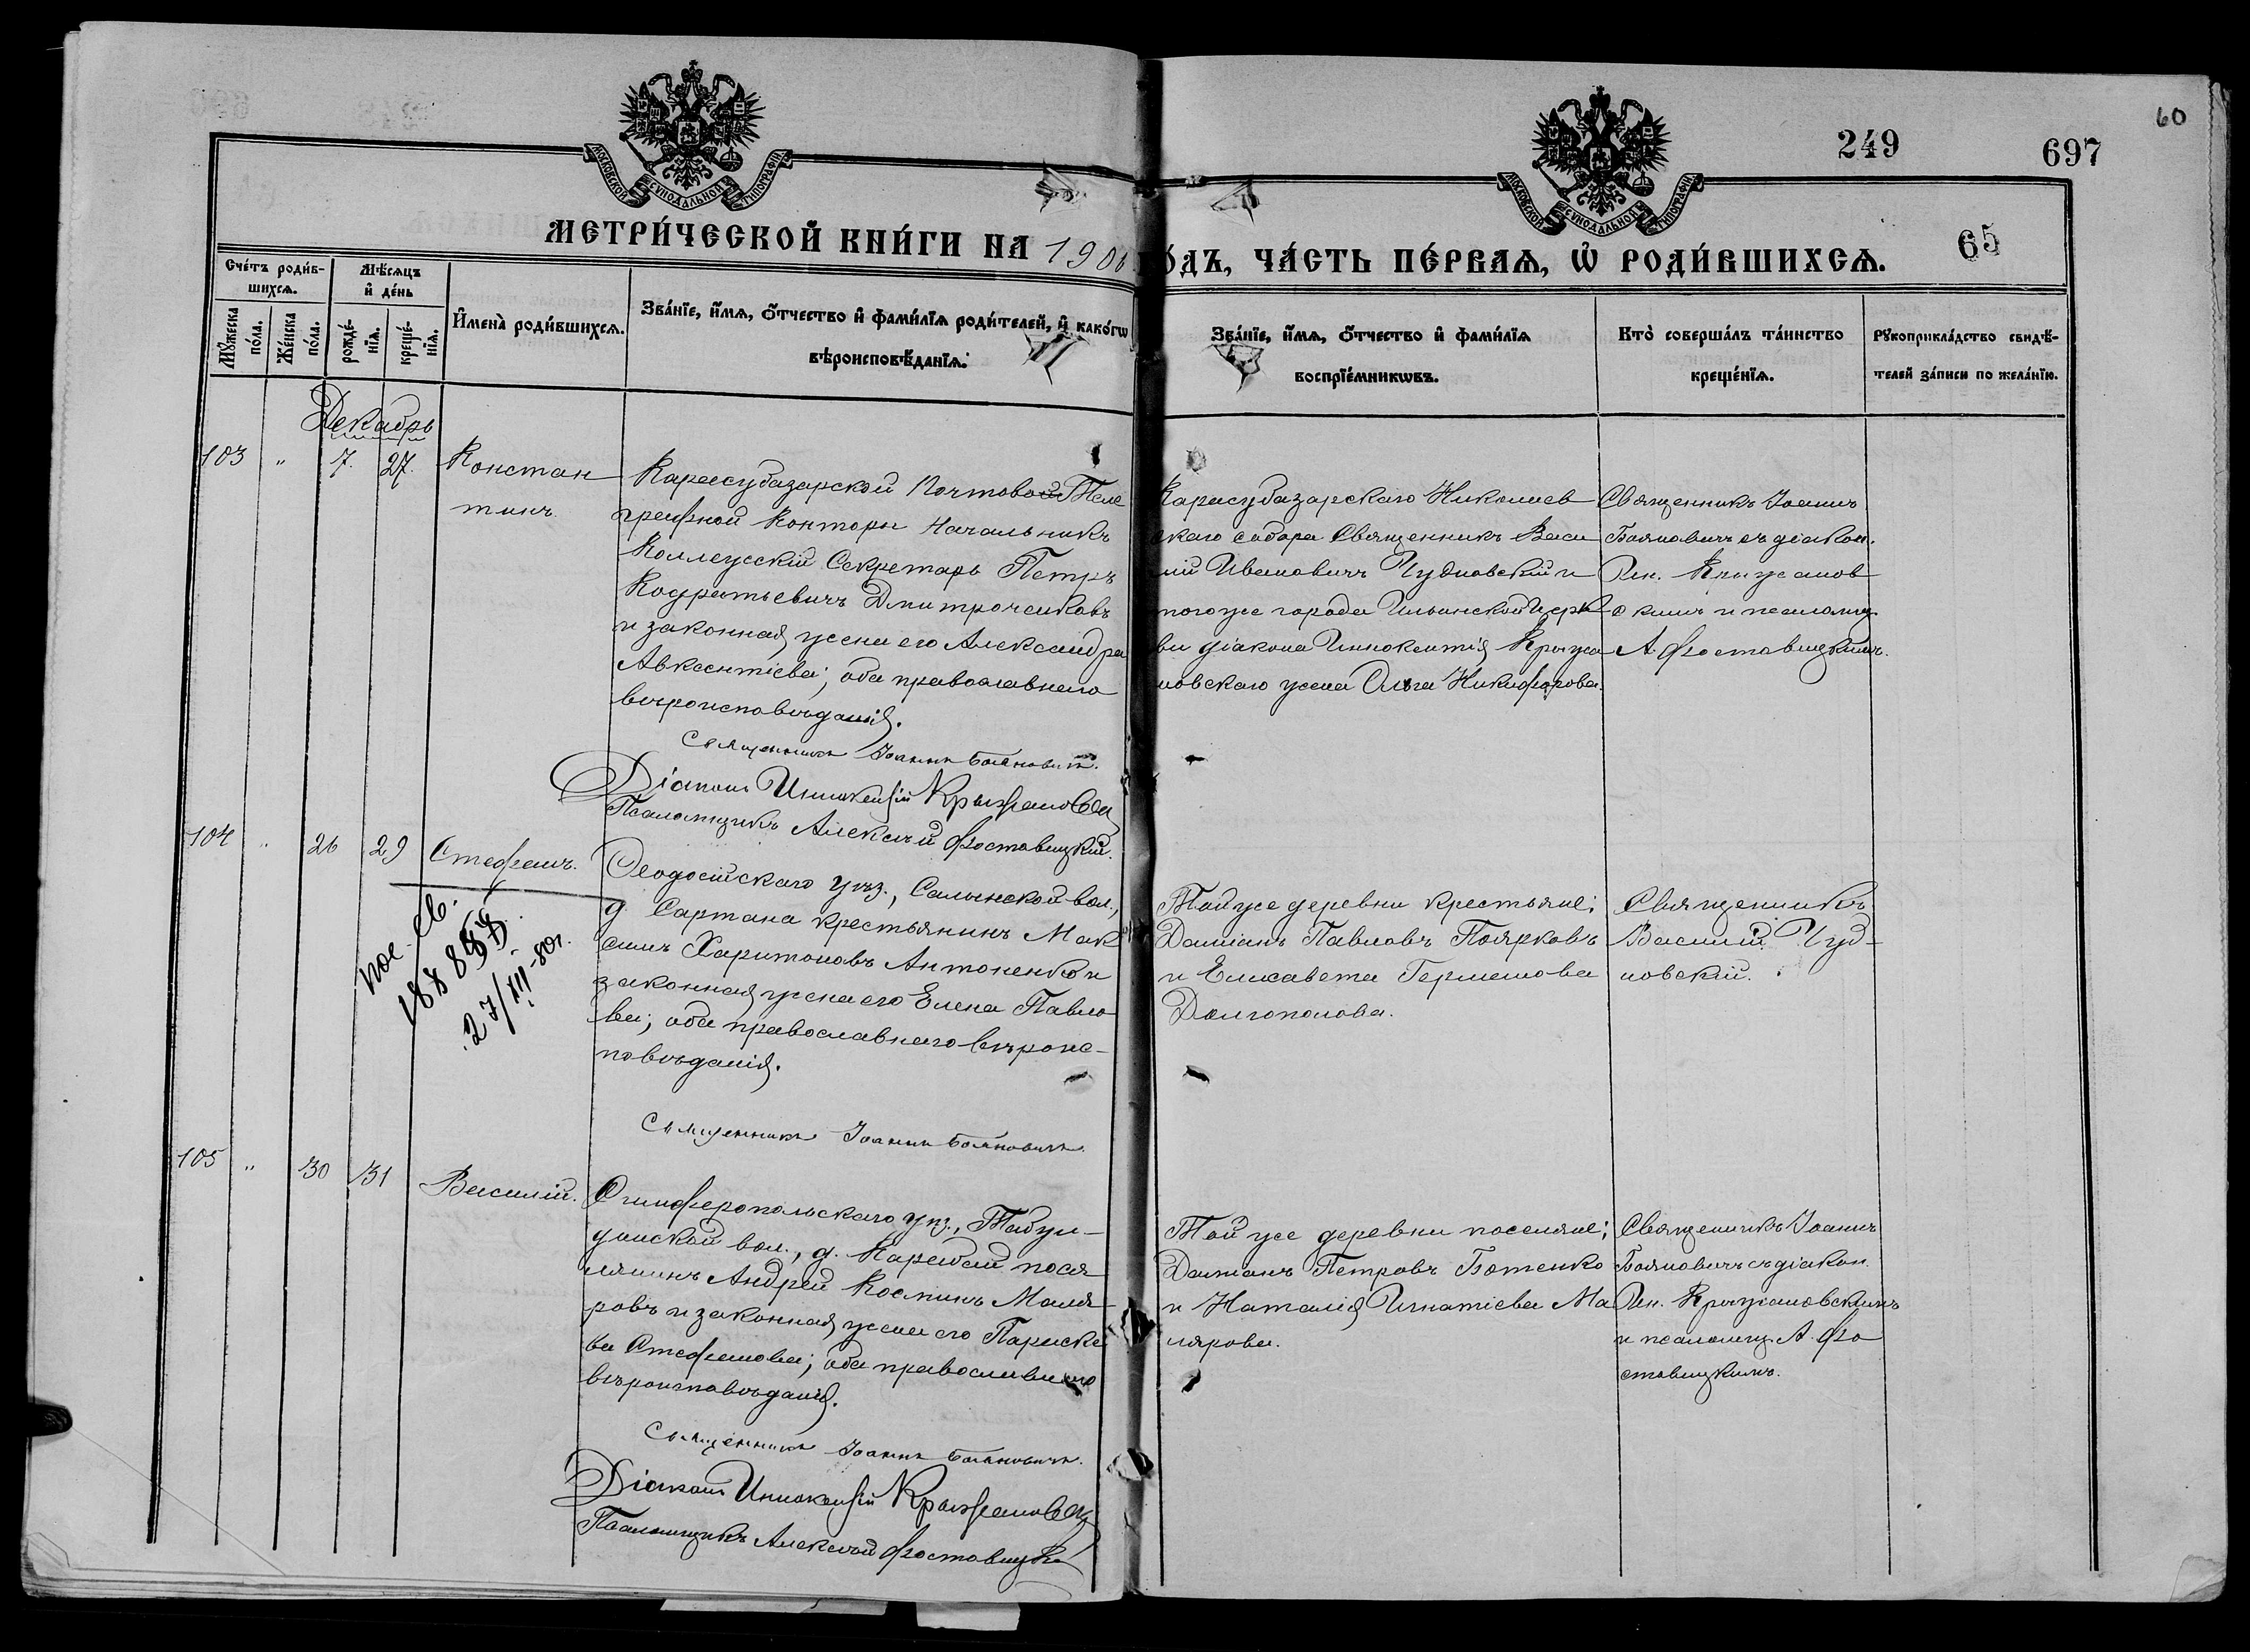 60
249
697
65
МОСКОВСКОЙ СѴНОДАЛЬНОЙ ТИПОГРАФІИ
МОСКОВСКОЙ СѴНОДАЛЬНОЙ ТИПОГРАФІИ
МЕТРИ́ЧЕСКОЙ КНИ́ГИ НА 1900
О́ДЪ, ЧА́СТЬ ПЕ́РВАѦ, Ѡ҆ РОДИ́ВШИХСѦ.
Сче́тъ роди́в-
шихсѧ.
Мꙋ́жеска
по́ла.
Же́нска
по́ла.
Мѣ́сѧцъ
и҆ де́нь
рожде́-
нїѧ.
креще́-
нїѧ.
И҆мена̀ роди́вшихсѧ.
Зва́нїе, и҆́мѧ, ѻ҆́тчество и҆ фами́лїѧ роди́телей, и҆ како́гѡ
вѣроисповѣ́данїѧ.
Зва́нїе, и҆́мѧ, ѻ҆́тчество и҆ фами́лїѧ
воспрїе́мникѡвъ.
Кто̀ соверша́лъ та́инство
креще́нїѧ.
Рꙋкоприкла́дство свидѣ́-
телей за́писи по жела́нїю.
Декабрь
103 " 7. 27.
Констан
тинъ.
Карасубазарской Почтовой Теле
графной Конторы Начальникъ
Коллежскій Секретарь Петръ
Кодратьевичъ Дмитроченковъ
и законная жена его Александра
Авксентіева; оба православнаго
вѣроисповѣданія.
Священникъ Іоаннъ Бояновичъ.
Діаконъ Иннокентій Крыжановскій
Псаломщикъ Алексѣй Фоставицкій.
Карасубазарскаго Николаев
скаго собора Священникъ Васи
лій Ивановичъ Чудновскій и
того же города Ильинской церк
ви діакона Иннокентія Крыжа
новскаго жена Ольга Никифорова.
Священникъ Іоаннъ
Бояновичъ съ діакон.
Ин. Крыжанов
скимъ и псаломщ.
А. Фоставицкимъ.
104 " 26 29
Стефанъ.
27/III-80г.
Ѳеодосійскаго уѣз., Салынской вол.,
д. Сартана крестьянинъ Мак
симъ Харитоновъ Антоненко и
законная жена его Елена Павло
ва; оба православнаго вѣроис-
повѣданія.
Священникъ Іоаннъ Бояновичъ.
Той же деревни крестьяне;
Даміанъ Павловъ Поярковъ
и Елисавета Германова
Долгополова.
Священникъ
Василій Чуд-
новскій.
105 " 30 31
Василій.
Симферопольскаго уѣз., Табул-
динской вол., д. Карабай посе
лянинъ Андрей Косминъ Маля-
ровъ и законная жена его Параске
ва Стефанова; оба православнаго
вѣроисповѣданія.
Священникъ Іоаннъ Бояновичъ.
Діаконъ Иннокентій Крыжановскій
Псаломщикъ Алексѣй Фоставицкій
Той же деревни поселяне;
Даміанъ Петровъ Ботенко
и Наталія Игнатіева Ма
лярова.
Священникъ Іоаннъ
Бояновичъ съ діакон.
Ин. Крыжановскимъ
и псаломщ. А. Фо
ставицкимъ.